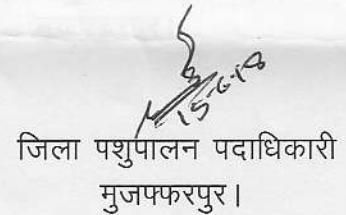 15-6-18
जिला पशुपालन पदाधिकारी
मुजफ्फरपुर।